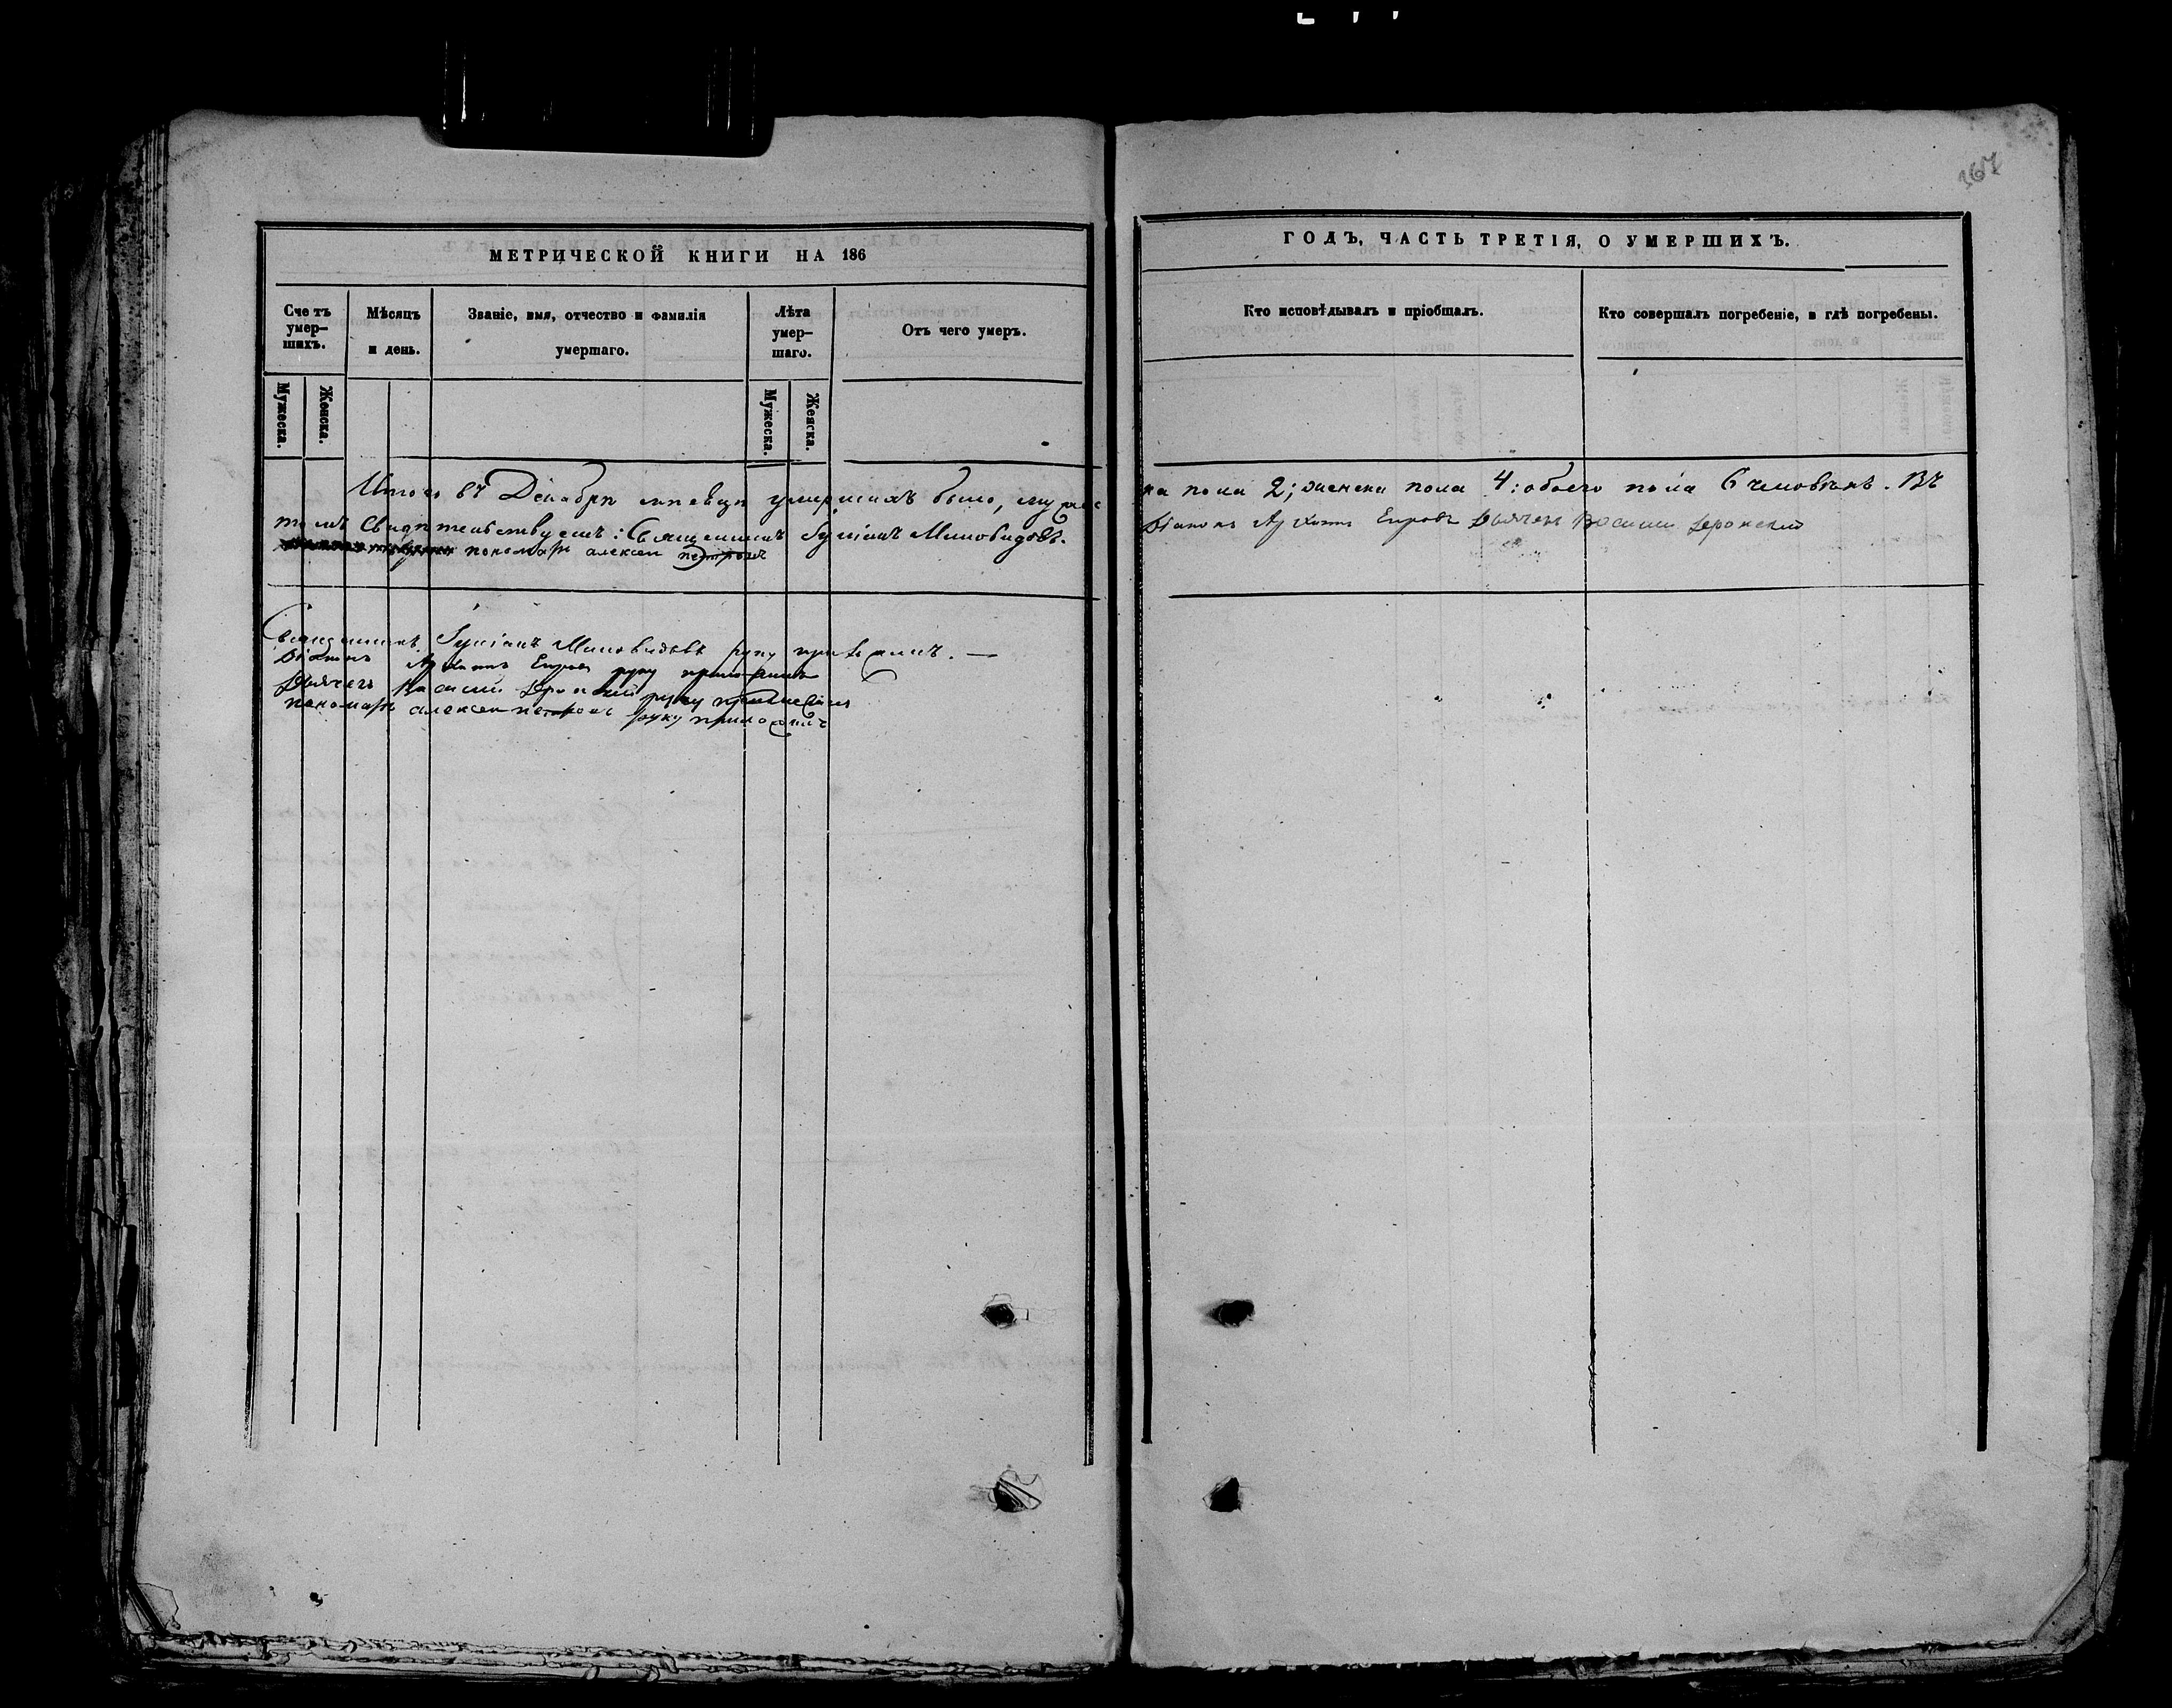 367
МЕТРИЧЕСКОЙ КНИГИ НА 186
ГОДЪ, ЧАСТЬ ТРЕТІЯ, О УМЕРШИХЪ.
Счетъ умер-
шихъ.
Мѣсяцъ
и день.
Званіе, имя, отчество и фамилія
умершаго.
Лѣта
умер-
шаго.
Отъ чего умеръ.
Кто исповѣдывалъ и пріобщалъ.
Кто совершалъ погребеніе, и гдѣ погребены.
Мужеска.
Женска.
Мужеска.
Женска.
Итого въ Декабрѣ мѣсяцѣ умершихъ было, мужес
ка пола 2; женска пола 4: обоего пола 6 человѣкъ. Въ
томъ свидѣтельствуемъ: Священникъ Іуліанъ Миловидовъ.
Діаконъ Дьячекъ Василій
пономарь алексей петровъ
Священникъ Іуліанъ Миловидовъ руку приложилъ.
Діаконъ руку приложилъ
Дьячекъ Василій руку приложилъ
пономарь алексей петровъ руку приложилъ